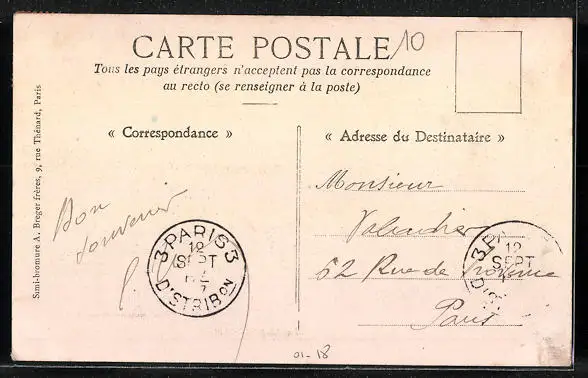 CARTE POSTALE
10
Tous les pays étrangers n'acceptent pas la correspondance
au recto (se renseigner à la poste)
« Correspondance »
« Adresse du Destinataire »
Simi-bromure A. Breger frères, 9, rue Thénard, Paris
Bon
souvenir
3 PARIS 3
12
SEPT
DISTRIBON
Monsieur
62 Rue de Provence
Paris
12
SEPT
01-18